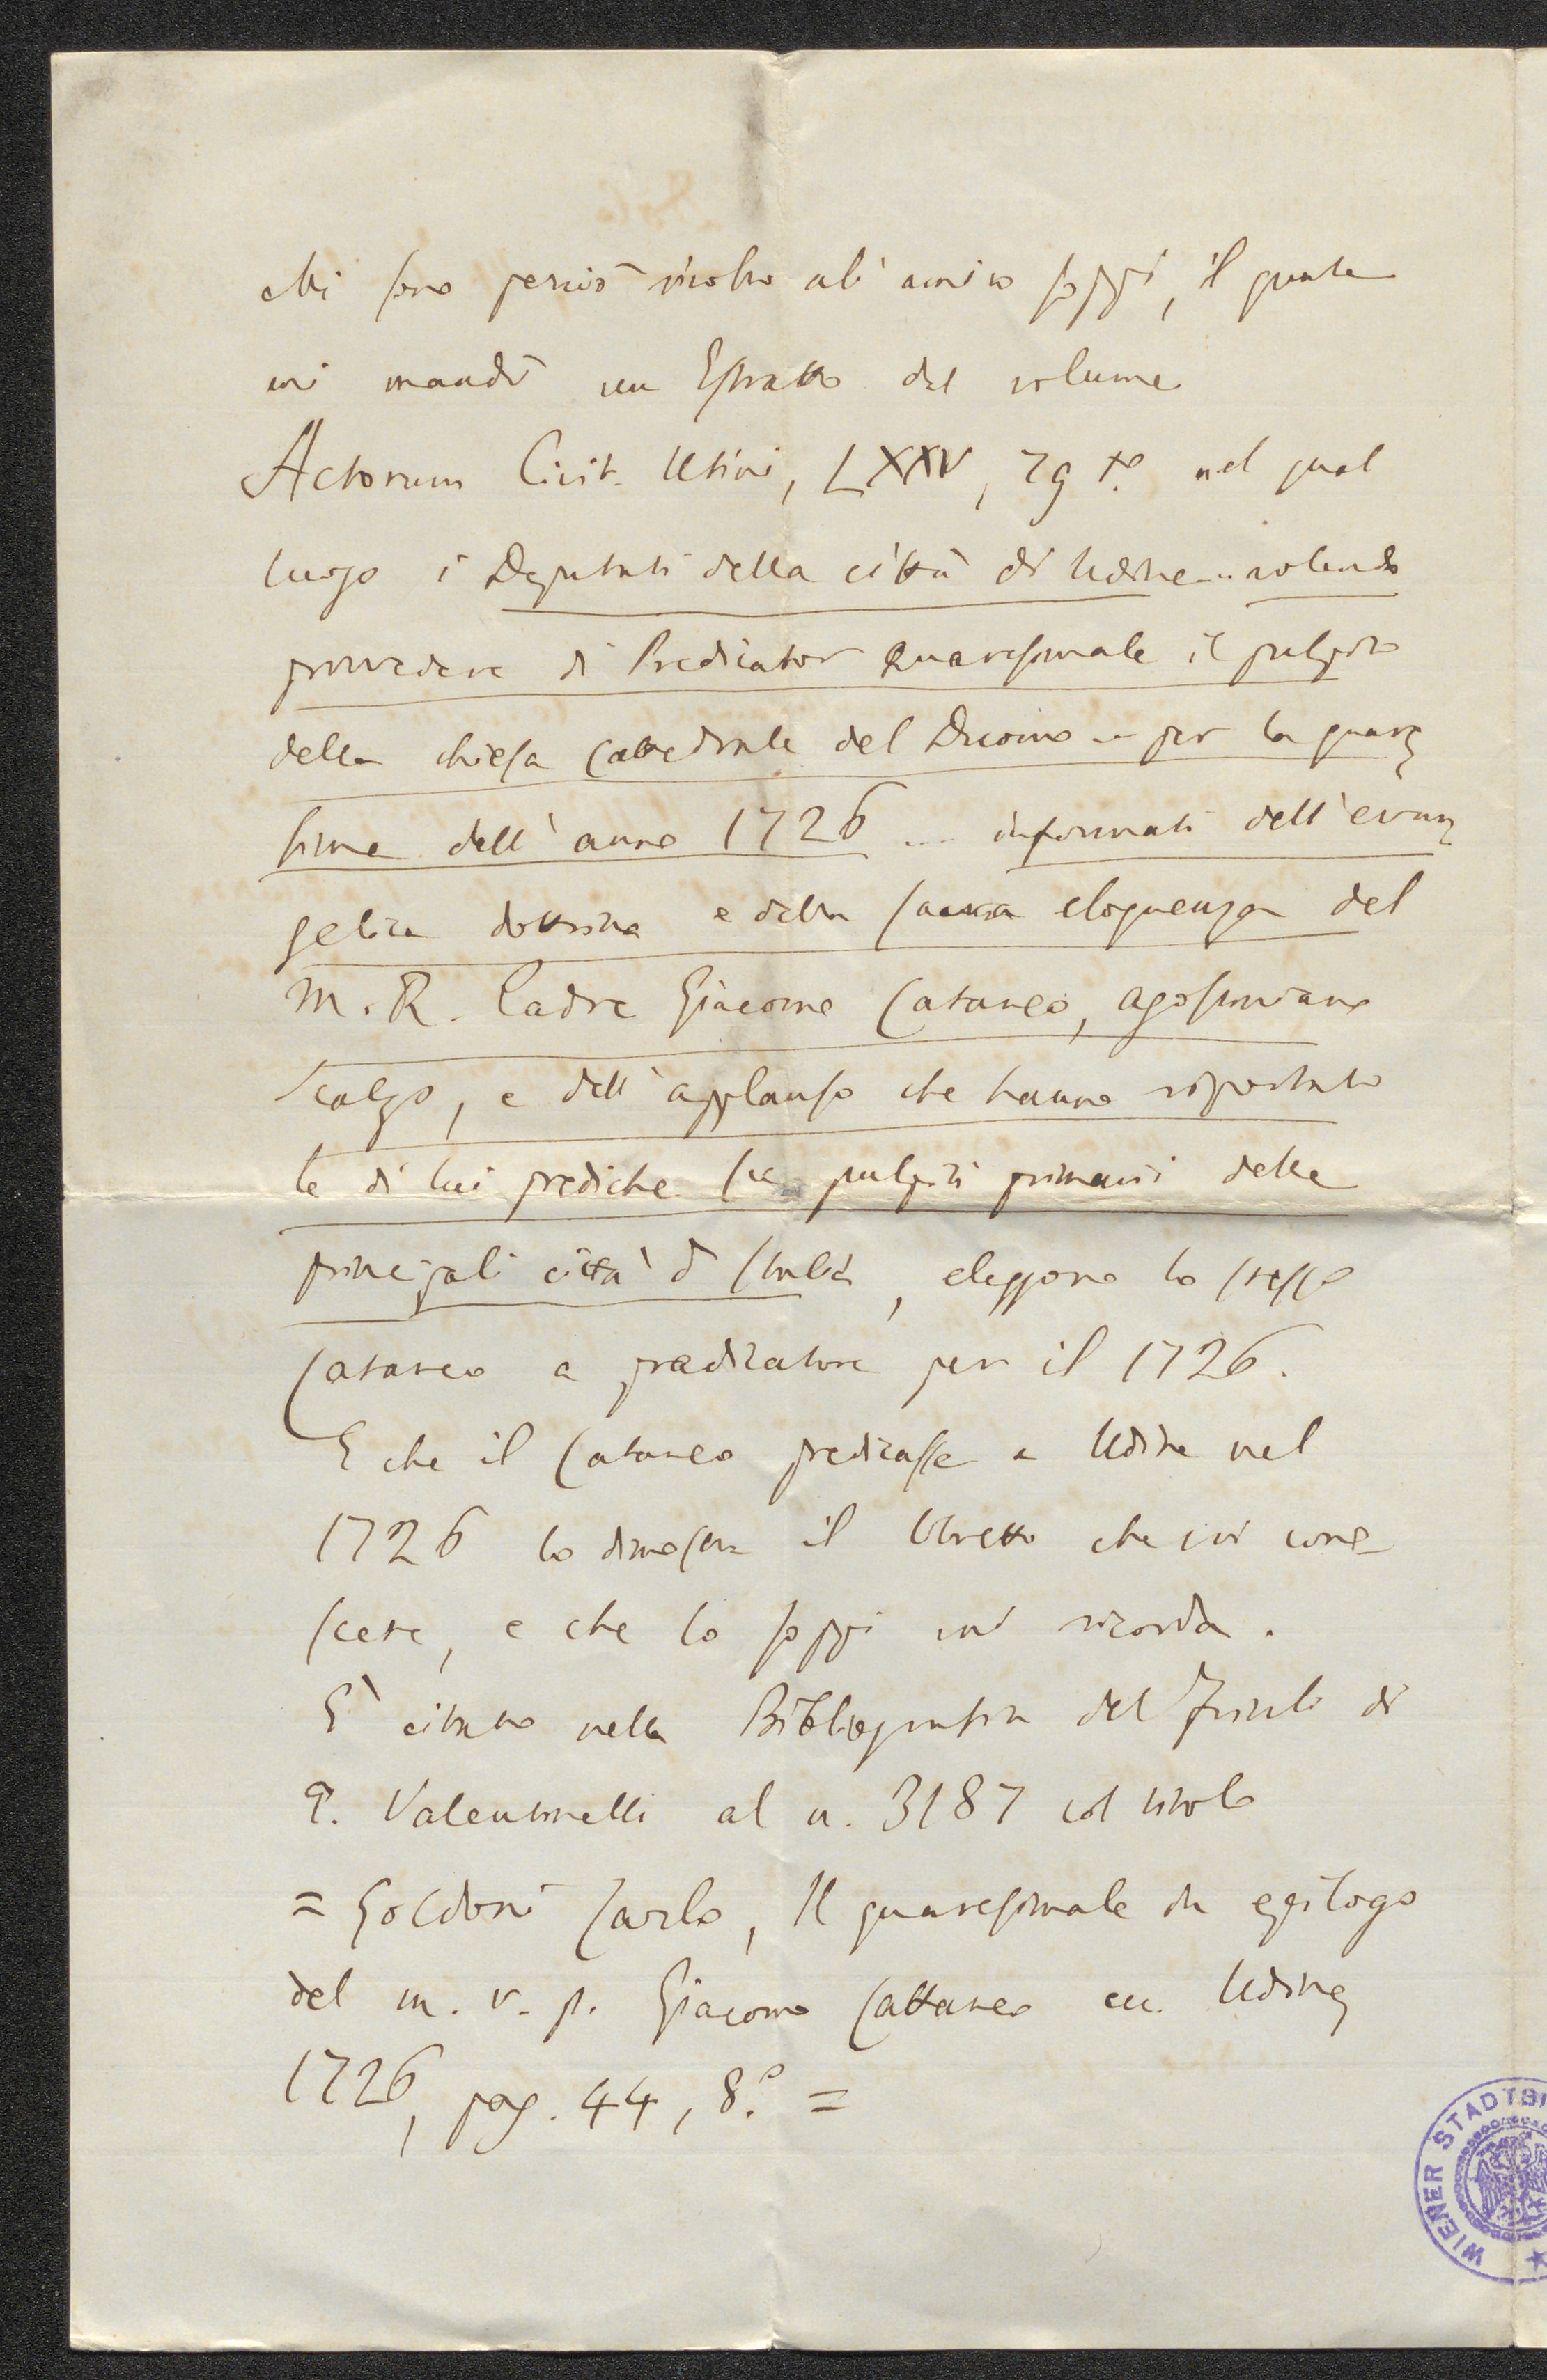 Mi sono perciò rivolto all'amico Joppi, il quale
mi mandò un Estratto dal volume
Actorum Civit. Utini, LXXV, 79 t.º nel qual
luogo i Deputati della città di Udine... volendo
provvedere di Predicator Quaresimale il pulpito
della chiesa Cattedrale del Duomo .. per la quare
sima dell'anno 1726 ... informati dell'evan
gelica dottrina e della sacra eloquenza del
M. R. Padre Giacomo Cataneo, agostiniano
scalzo, e dell'applauso che hanno riportato
le di lui prediche su pulpiti primarii delle
principali città d'Italia, eleggono lo stesso
Cataneo a predicatore per il 1726.
E che il Cataneo predicasse a Udine nel
1726 lo dimostra il libretto che voi cono-
scete, e che lo Joppi mi ricorda.
È citato nella Bibliografia del Friuli di
G. Valentinelli al n. 3187 col titolo
= Goldoni Carlo, Il quaresimale in epilogo
del m. r. p. Giacomo Cattaneo ec. Udine,
1726, pag. 44, 8.º =
WIENER STADTBI